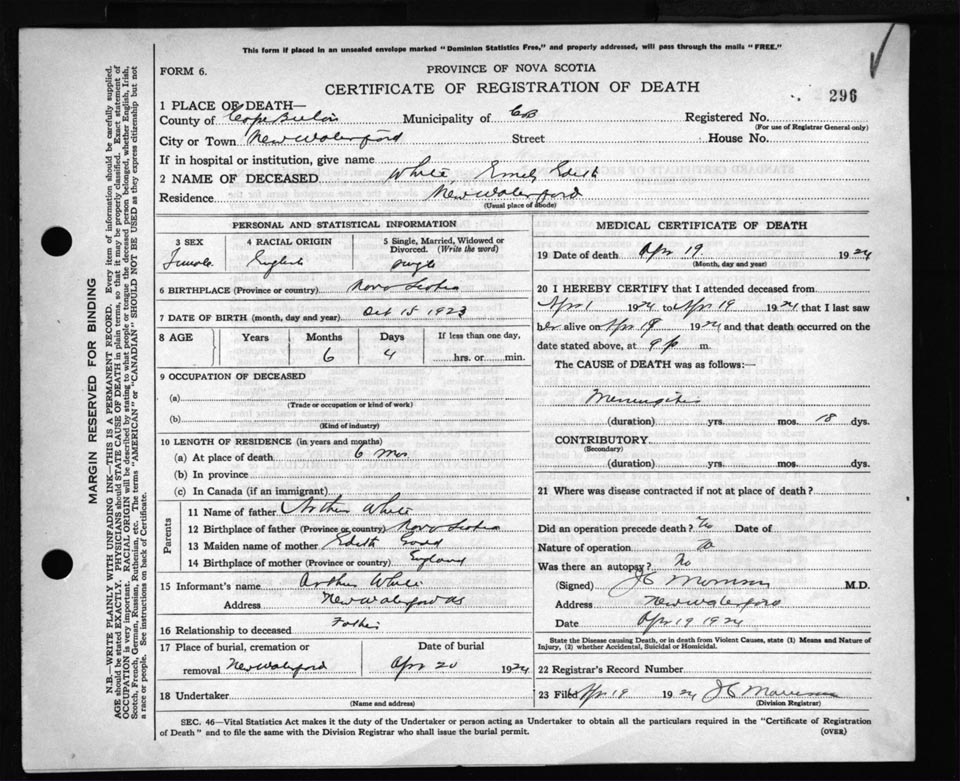 This form if placed in an unsealed envelope marked "Dominion Statistics Free," and properly addressed, will pass through the mails "FREE."
FORM 6.
PROVINCE OF NOVA SCOTIA
CERTIFICATE OF REGISTRATION OF DEATH
296
1 PLACE OF DEATH—
County of Cape Breton Municipality of CB Registered No.
(For use of Registrar General only)
City or Town New Waterford Street House No.
If in hospital or institution, give name
2 NAME OF DECEASED White, Emily Edith
Residence New Waterford
(Usual place of abode)
PERSONAL AND STATISTICAL INFORMATION
3 SEX 4 RACIAL ORIGIN 5 Single, Married, Widowed or Divorced. (Write the word)
Female English single
6 BIRTHPLACE (Province or country) Nova Scotia
7 DATE OF BIRTH (month, day and year) Oct 15 1923
8 AGE Years Months Days If less than one day,
6 4 hrs. or min.
9 OCCUPATION OF DECEASED
(a)
(Trade or occupation or kind of work)
(b)
(Kind of industry)
10 LENGTH OF RESIDENCE (in years and months)
(a) At place of death 6 Mos
(b) In province
(c) In Canada (if an immigrant)
Parents
11 Name of father Arthur White
12 Birthplace of father (Province or country) Nova Scotia
13 Maiden name of mother Edith
14 Birthplace of mother (Province or country) England
15 Informant's name Arthur White
Address New Waterford NS
16 Relationship to deceased Father
17 Place of burial, cremation or removal New Waterford Date of burial Apr 20 1924
18 Undertaker
(Name and address)
MEDICAL CERTIFICATE OF DEATH
19 Date of death Apr 19. 1924
(Month, day and year)
20 I HEREBY CERTIFY that I attended deceased from
Apr 1 1924 to Apr 19 1924 that I last saw
her alive on Apr 18 1924 and that death occurred on
date stated above, at 9 p m.
The CAUSE of DEATH was as follows:—
Meningitis
(duration) yrs. mos. 18 dys.
CONTRIBUTORY
(Secondary)
(duration) yrs. mos. dys.
21 Where was disease contracted if not at place of death?
Did an operation precede death? No Date of
Nature of operation
Was there an autopsy? No
(Signed) M.D.
Address New Waterford
Date Apr 19 1924
State the Disease causing Death, or in death from Violent Causes, state (1) Means and Nature of
Injury, (2) whether Accidental, Suicidal or Homicidal.
22 Registrar's Record Number
23 Filed Apr 19 1924
(Division Registrar)
SEC. 46—Vital Statistics Act makes it the duty of the Undertaker or person acting as Undertaker to obtain all the particulars required in the "Certificate of Registration
of Death" and to file the same with the Division Registrar who shall issue the burial permit.
(OVER)
MARGIN RESERVED FOR BINDING
N.B.—WRITE PLAINLY WITH UNFADING INK—THIS IS A PERMANENT RECORD. Every item of information should be carefully supplied.
AGE should be stated EXACTLY. PHYSICIANS should STATE CAUSE OF DEATH in plain terms, so that it may be properly classified. Exact statement of
OCCUPATION is very important. RACIAL ORIGIN will be described by stating to what people or tongue the deceased person belonged, whether English, Irish,
Scotch, French, German, Russian, Ruthenian, etc. The terms "AMERICAN" or "CANADIAN" SHOULD NOT BE USED as they express citizenship but not
a race or people. See instructions on back of Certificate.